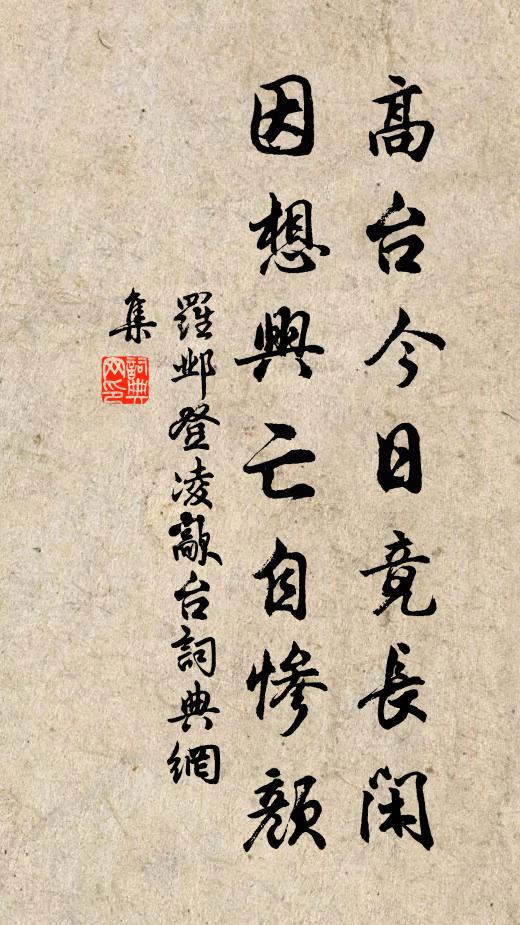 高台今日竟長閑
因想興亡自慘顏
羅鄴登凌歊台詞典網
集
詞典
网印